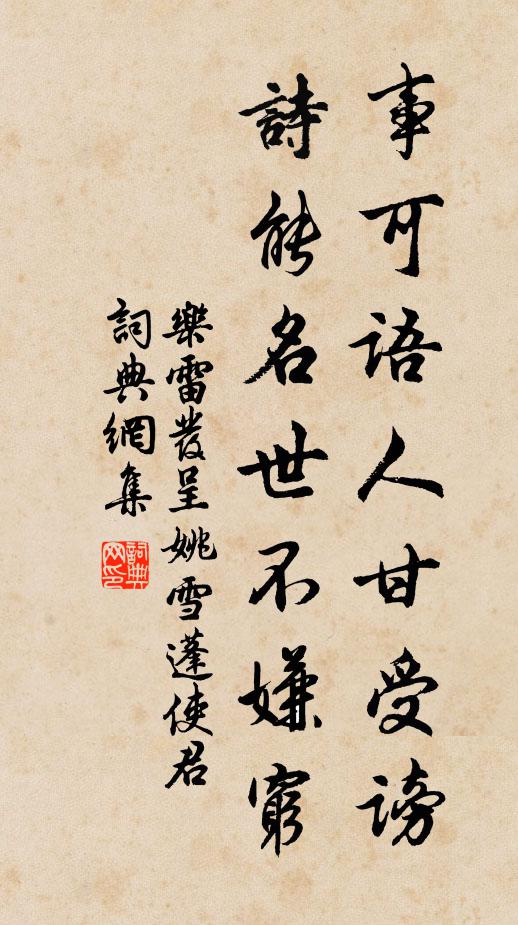 事可語人甘受謗
詩能名世不嫌窮
樂雷發呈姚雪蓬使君
詞典網集
詞典网印